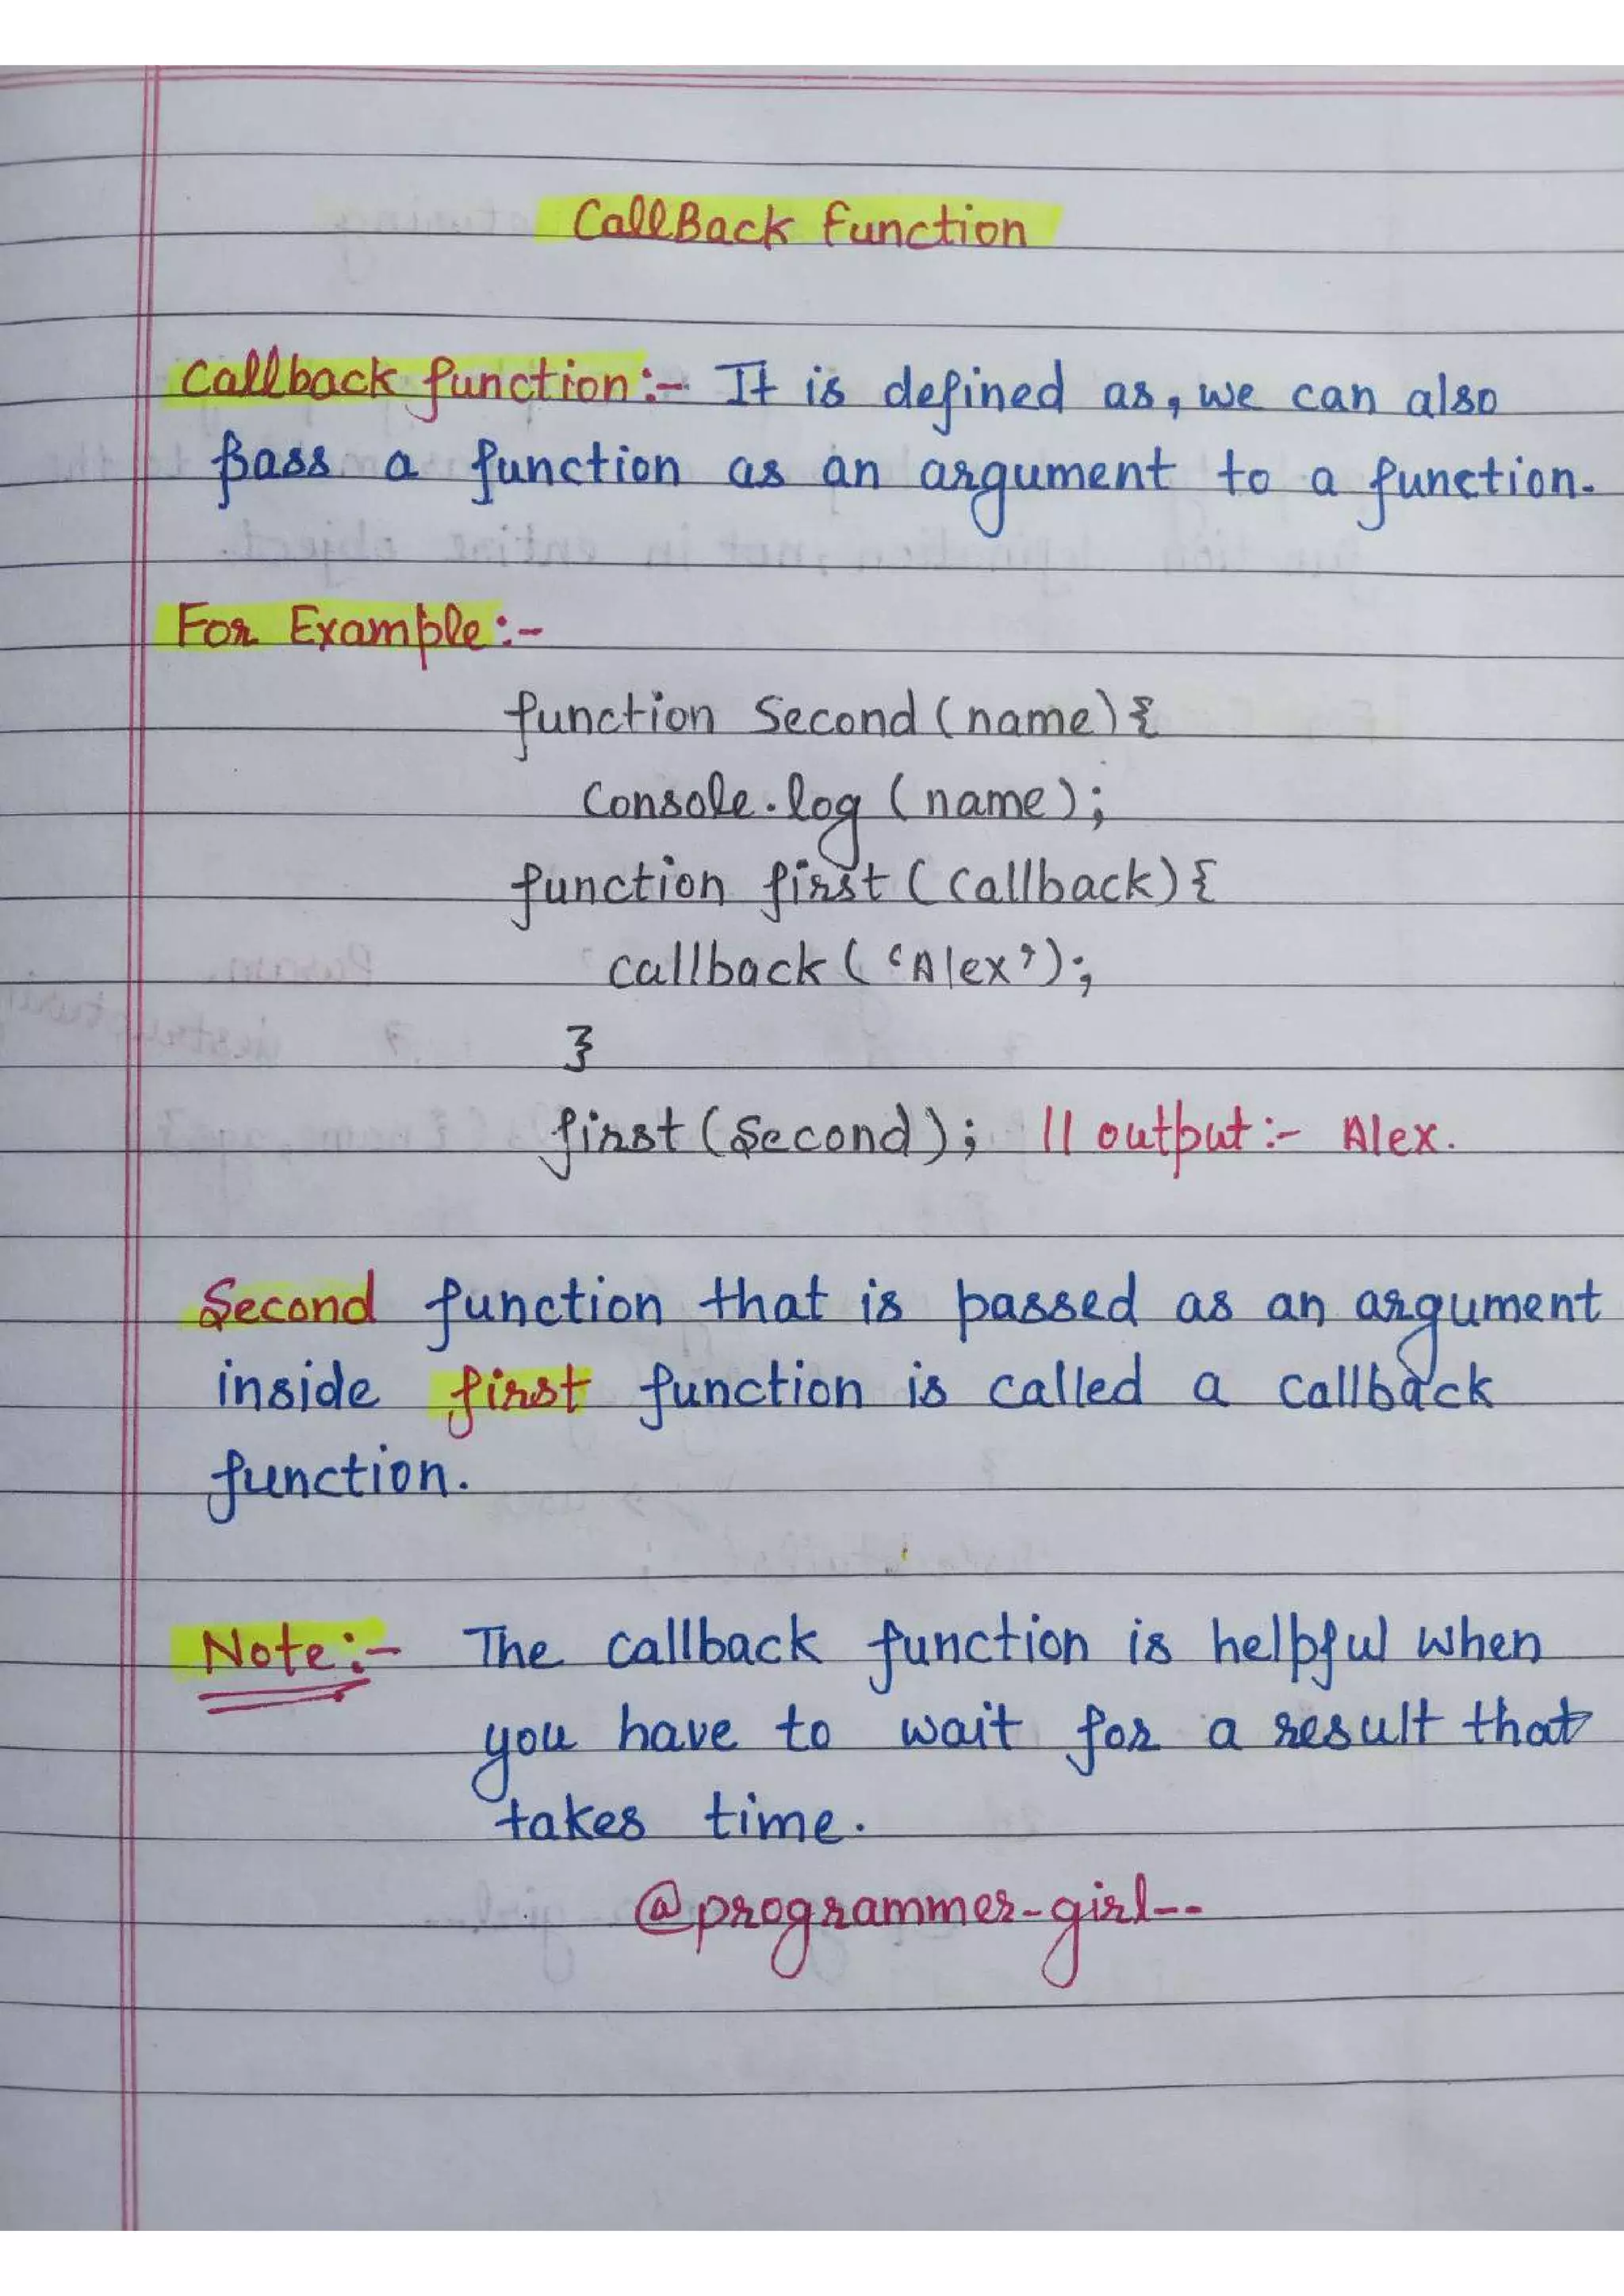 CallBack Function
Callback function:- It is defined as, we can also
pass a function as an argument to a function.
For Example:-
function Second (name) {
Console.log (name);
function first (callback) {
callback ('Alex');
}
first (Second); // output:- Alex.
Second function that is passed as an argument
inside first function is called a callback
function.
Note:- The callback function is helpful when
you have to wait for a result that
takes time.
@programmer-girl--